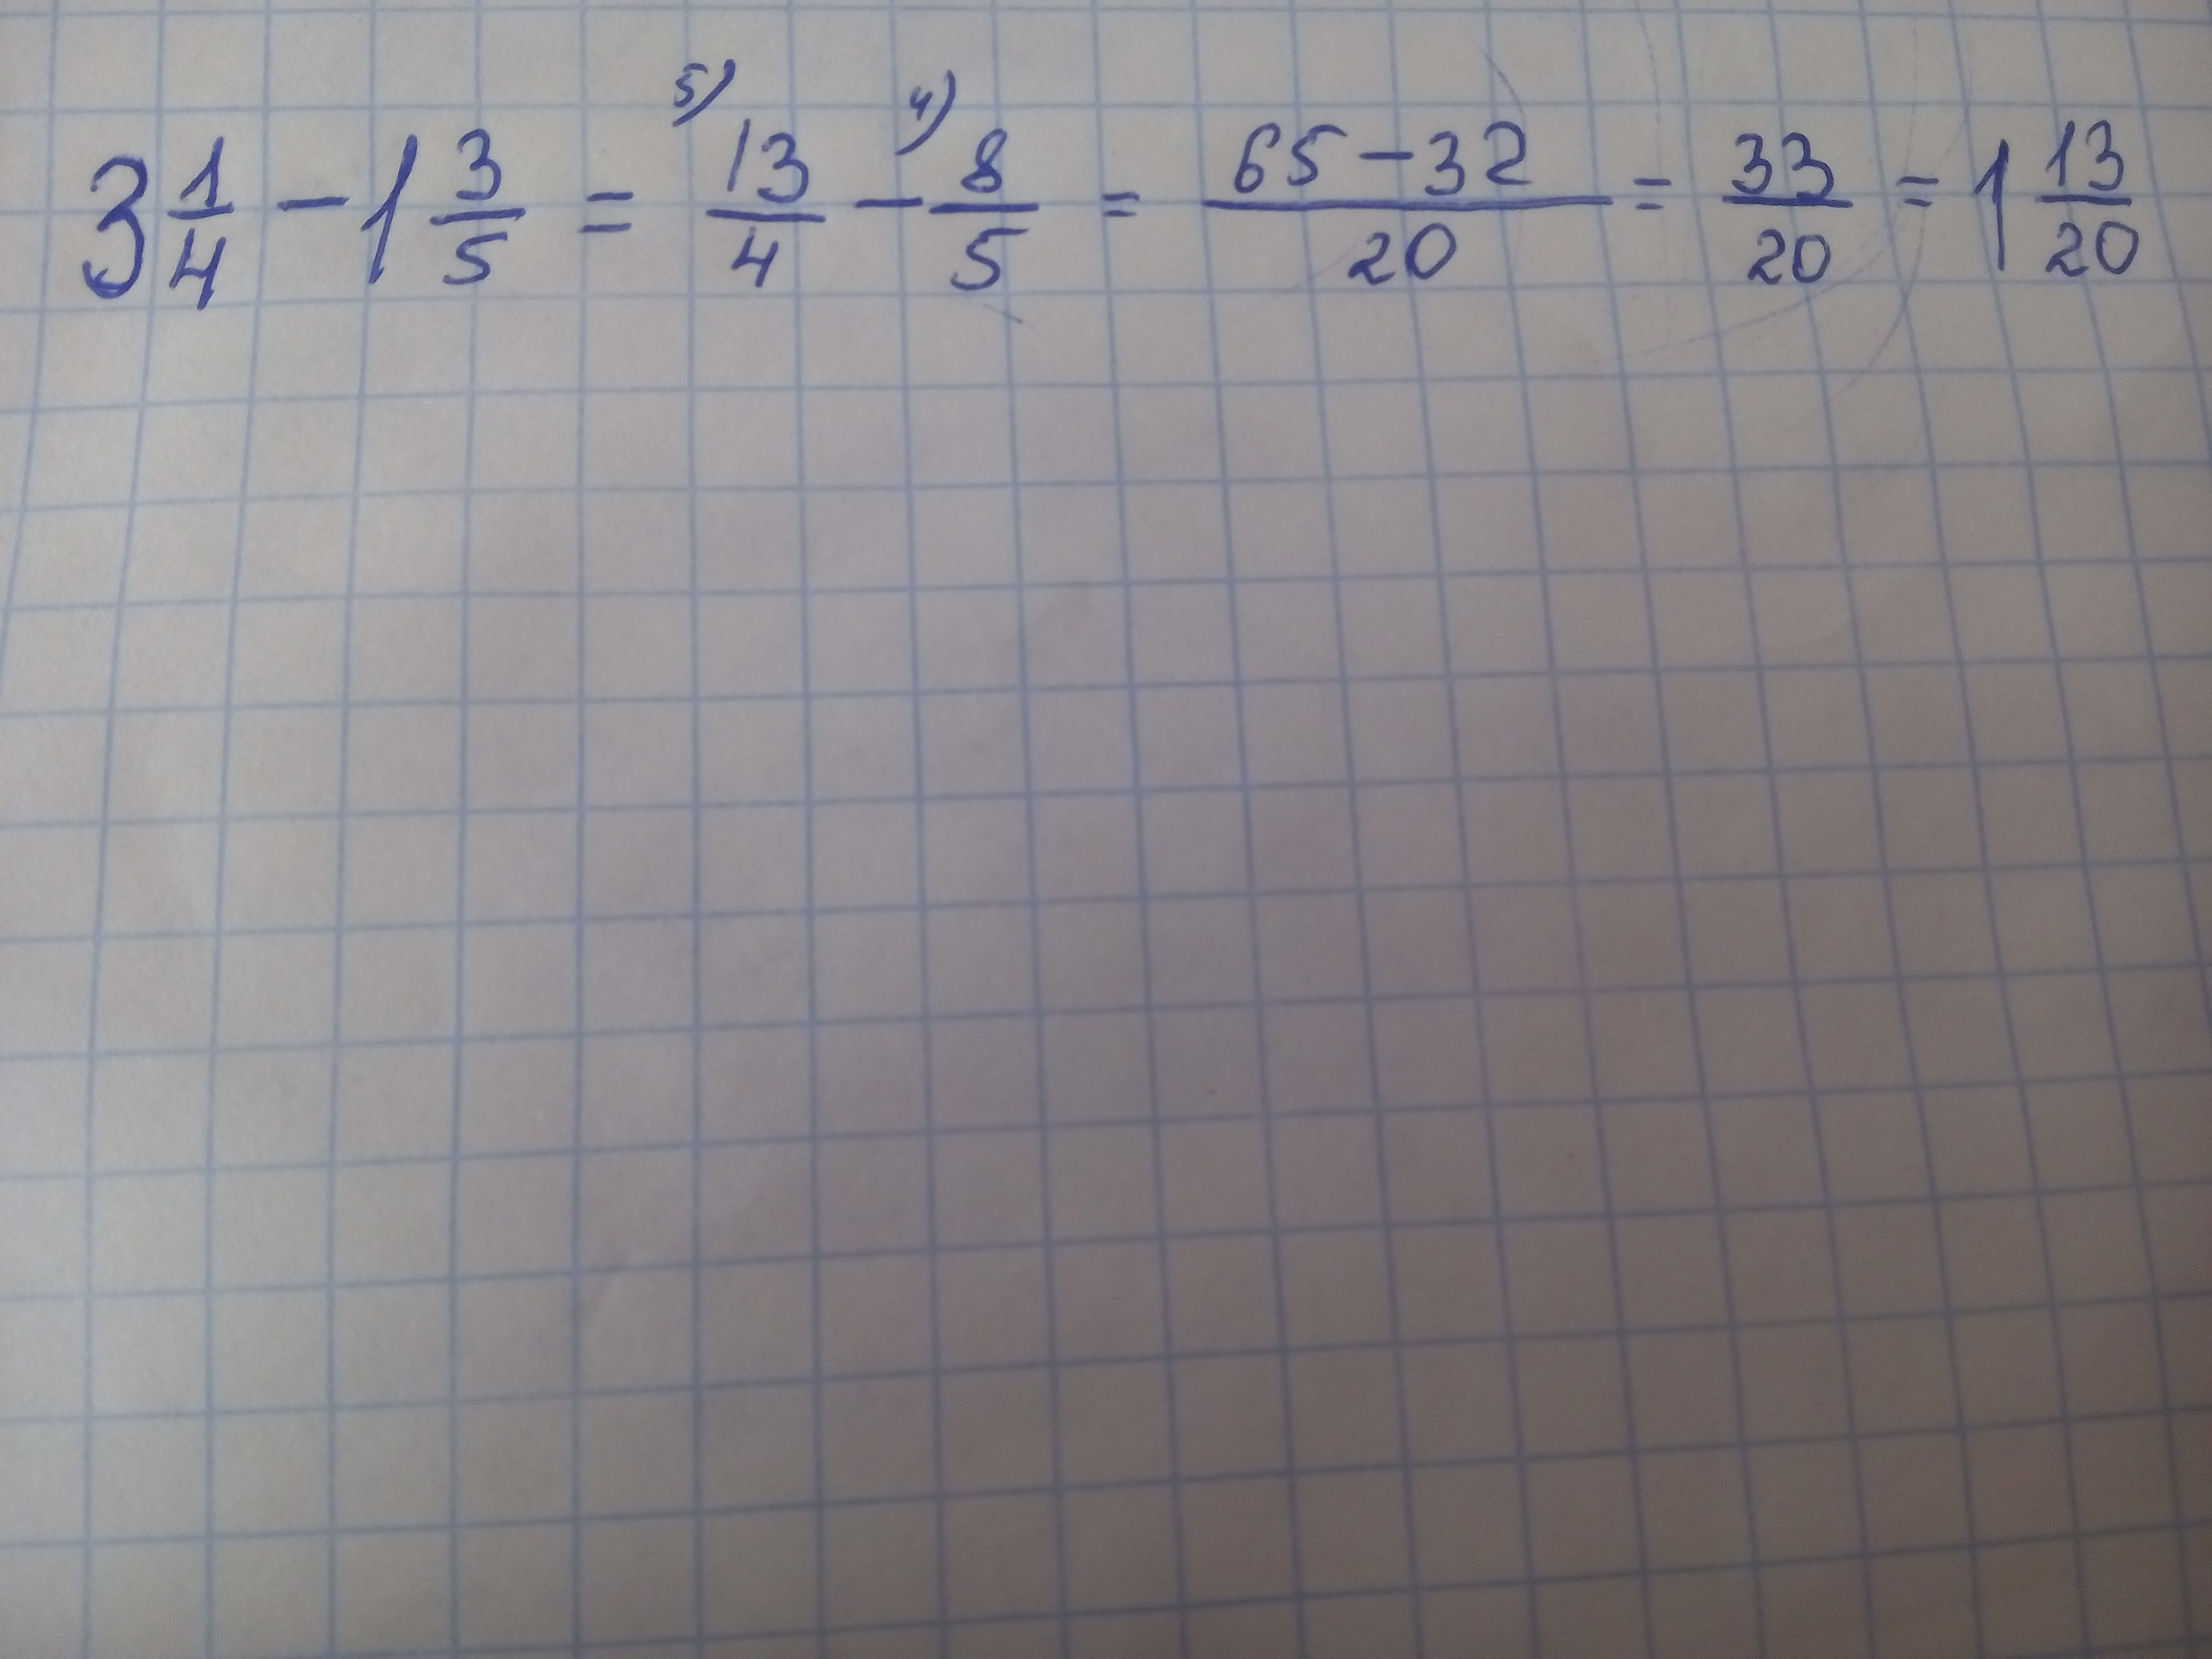 3 1/4 - 1 3/5 = 5) 13/4 - 4) 8/5 = 65-32/20 = 33/20 = 1 13/20